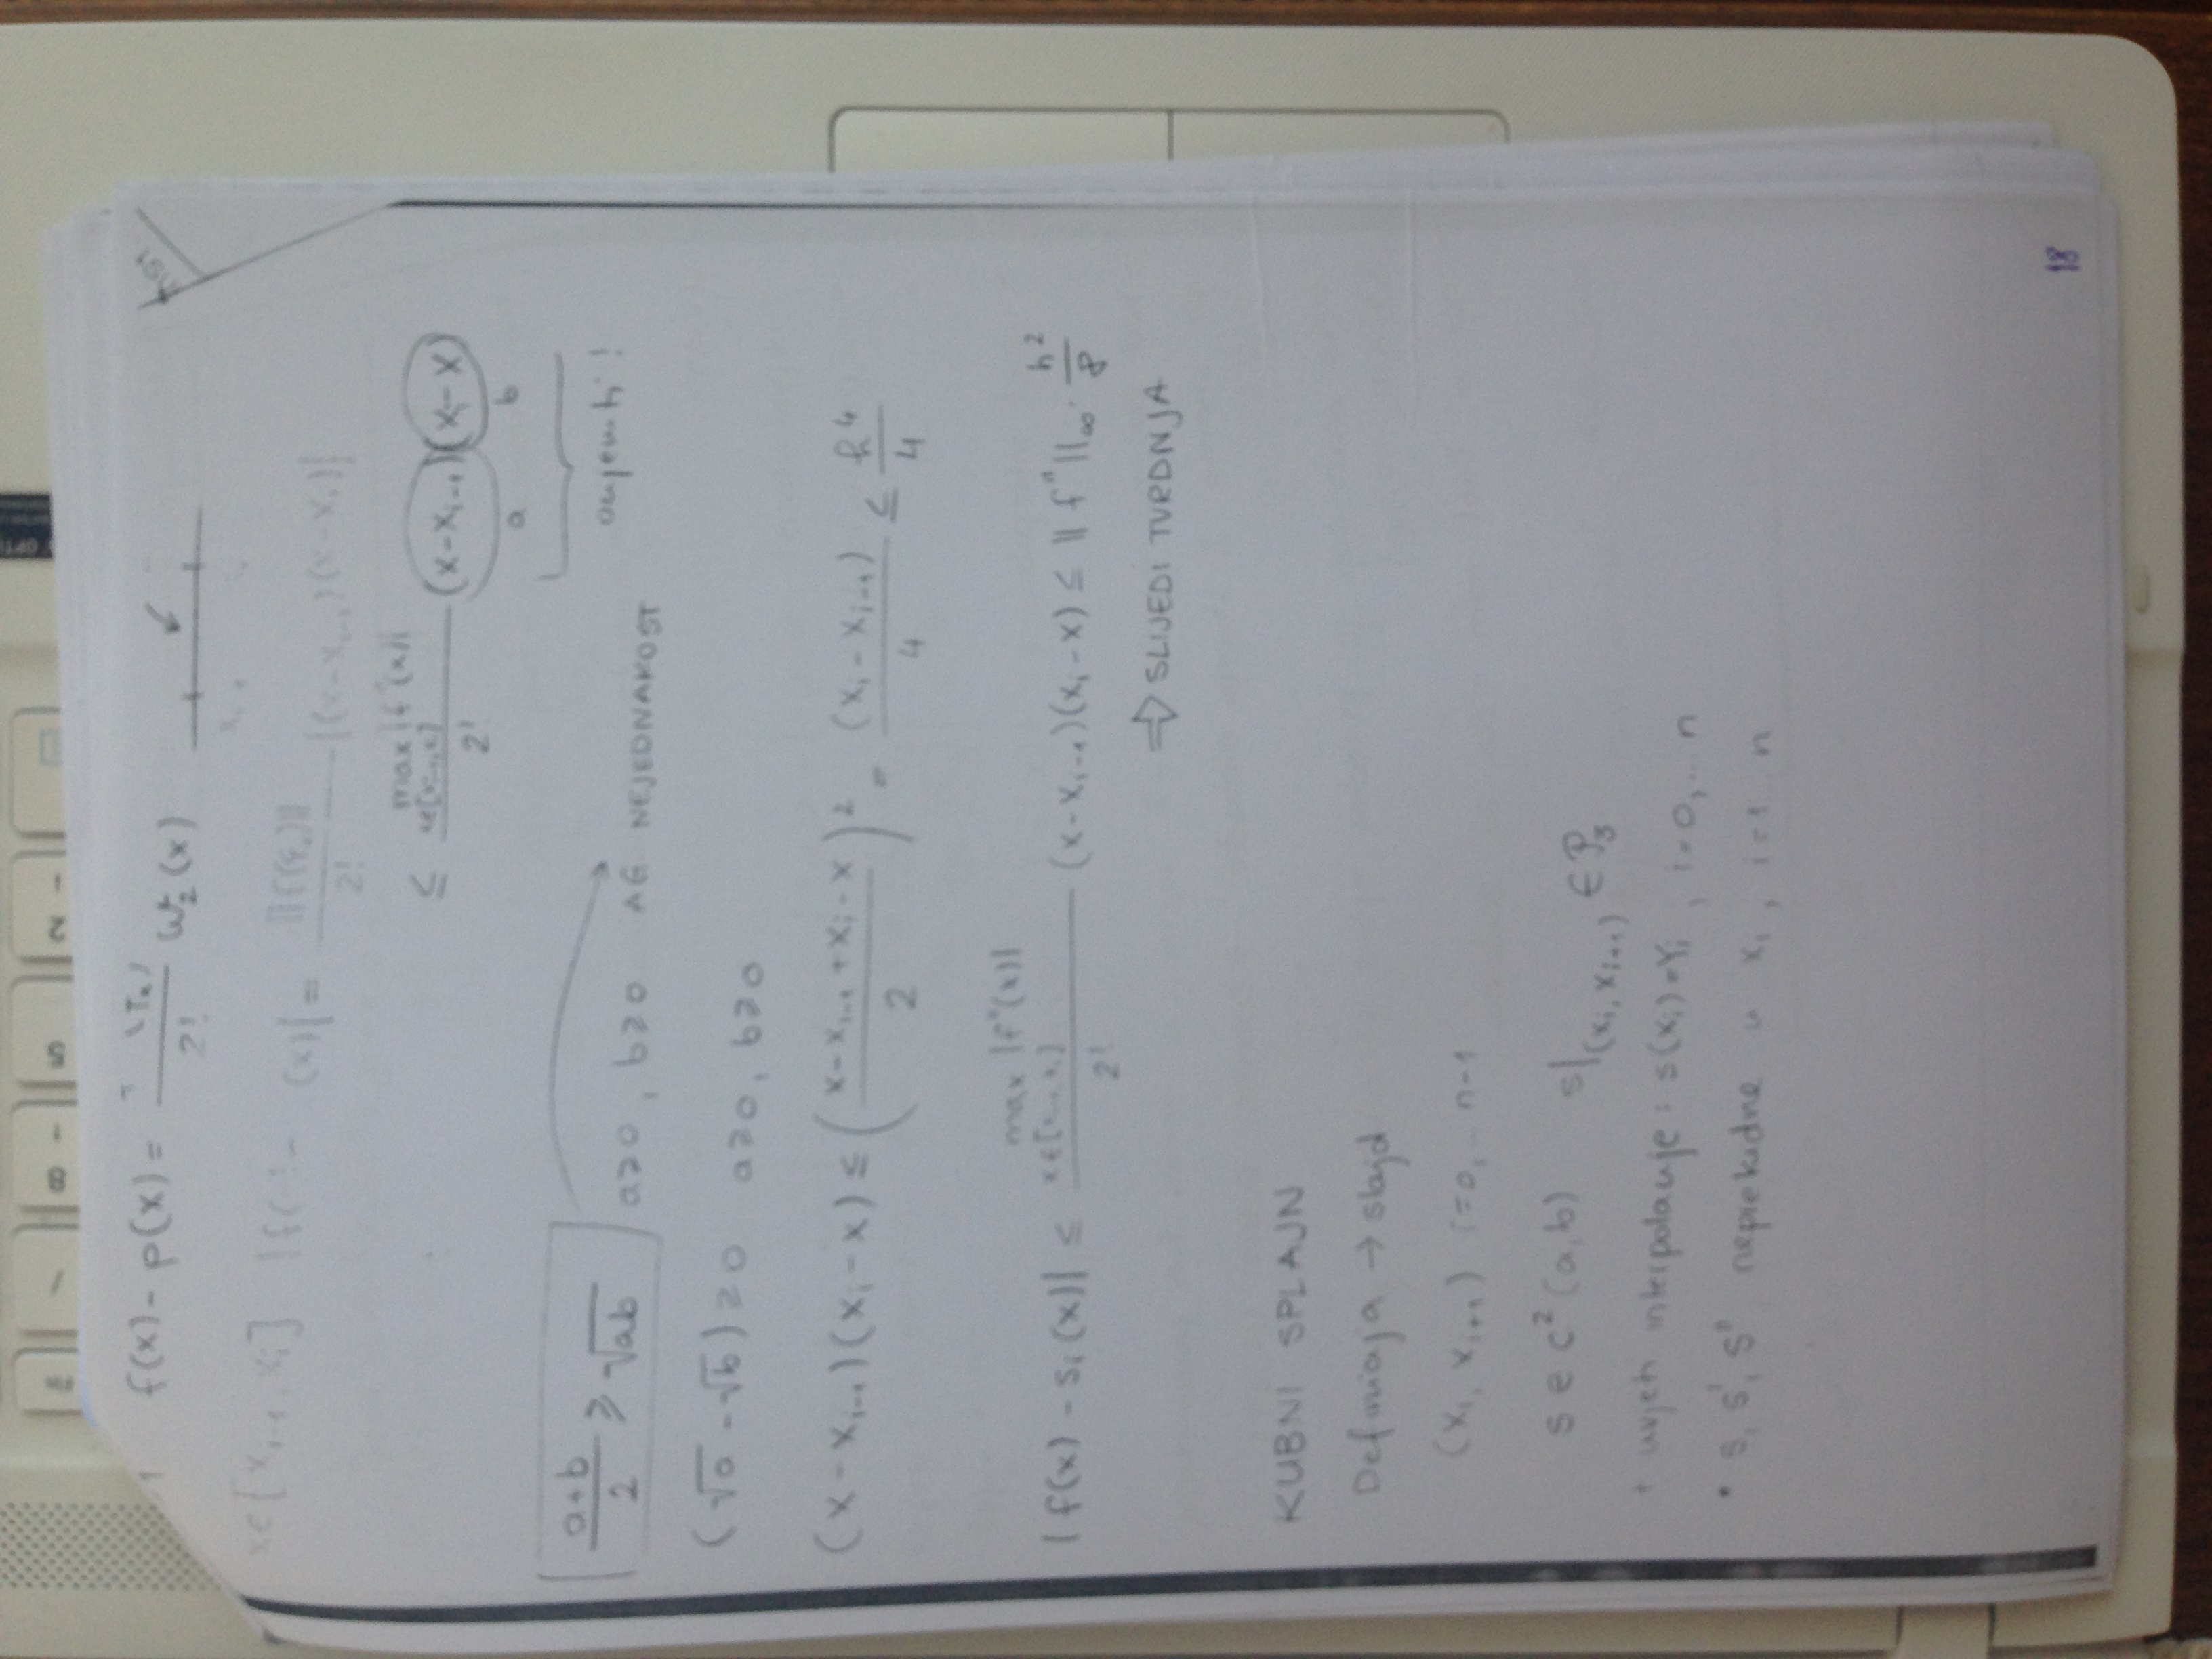 8 5 2
f(x) - p(x) = / 2! ω₂(x)
x∈[x_{i-1}, x_i] |f( ) - (x)| = / 2! |(x-x_{i-1})(x-x_i)|
≤ max |f''(x)| / 2! (x-x_{i-1})(x_i-x)
a b
(a+b)/2 ≥ √(ab) a≥0, b≥0 AG NEJEDNAKOST
(√a - √b) ≥ 0 a≥0, b≥0
(x-x_{i-1})(x_i-x) ≤ ((x-x_{i-1}+x_i-x)/2)² = (x_i-x_{i-1})/4 ≤ h⁴/4
|f(x) - s_i(x)| ≤ max |f''(x)| x∈[x_{i-1}, x_i] / 2! (x-x_{i-1})(x_i-x) ≤ ||f''||_∞ · h²/8
⇒ SLIJEDI TVRDNJA
KUBNI SPLAJN
Definicija → slajd
(x_i, x_{i+1}) i=0,... n-1
s ∈ C²(a,b) s|_{(x_i, x_{i+1})} ∈ P₃
+ uvjeti interpolacije: s(x_i)=Y_i, i=0,... n
• s, s', s'' neprekidne u x_i, i=1... n
18